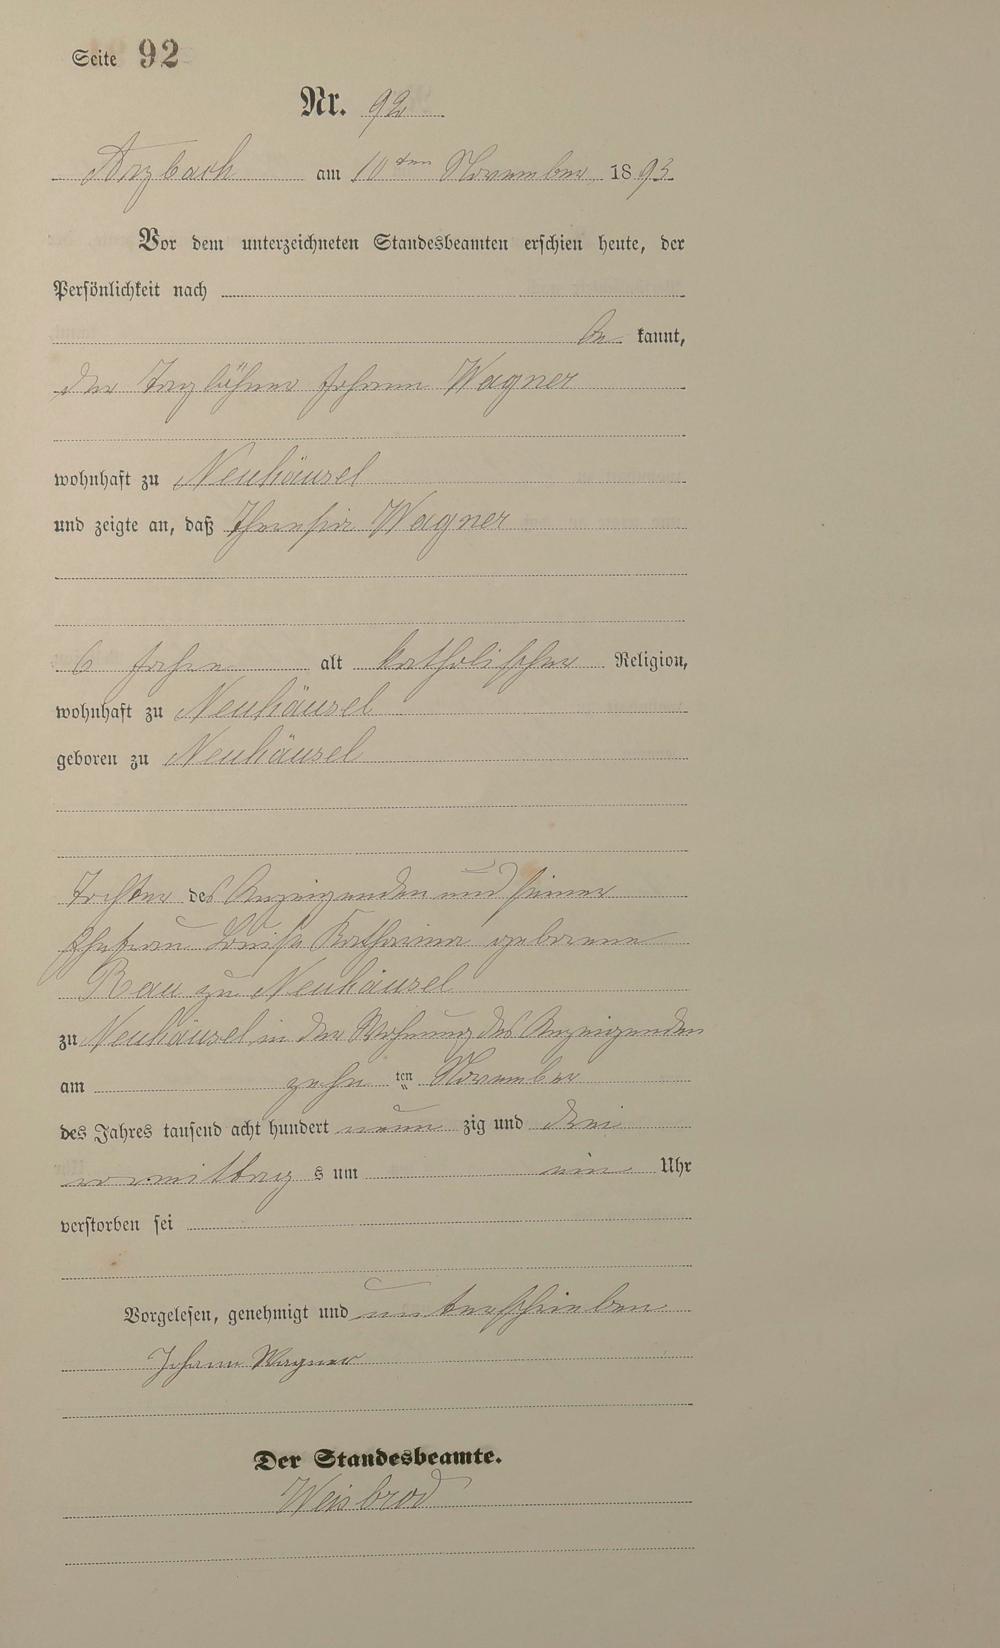 Seite 92
Nr. 92
Arzbach am 10ten November 1893
Vor dem unterzeichneten Standesbeamten erschien heute, der
Persönlichkeit nach
be kannt,
der Taglöhner Johann Wagner
wohnhaft zu Neuhäusel
und zeigte an, daß Theresia Wagner
6 Jahre alt katholischer Religion,
wohnhaft zu Neuhäusel
geboren zu Neuhäusel
Tochter des Anzeigenden und seiner
Ehefrau Louise Katharina geborene
Rau zu Neuhäusel
zu Neuhäusel in der Wohnung des Anzeigenden
am zehn ten November
des Jahres tausend acht hundert neun zig und drei
vormittag s um ein Uhr
verstorben sei
Vorgelesen, genehmigt und unterschrieben
Johann Wagner
Der Standesbeamte.
Weisbrod